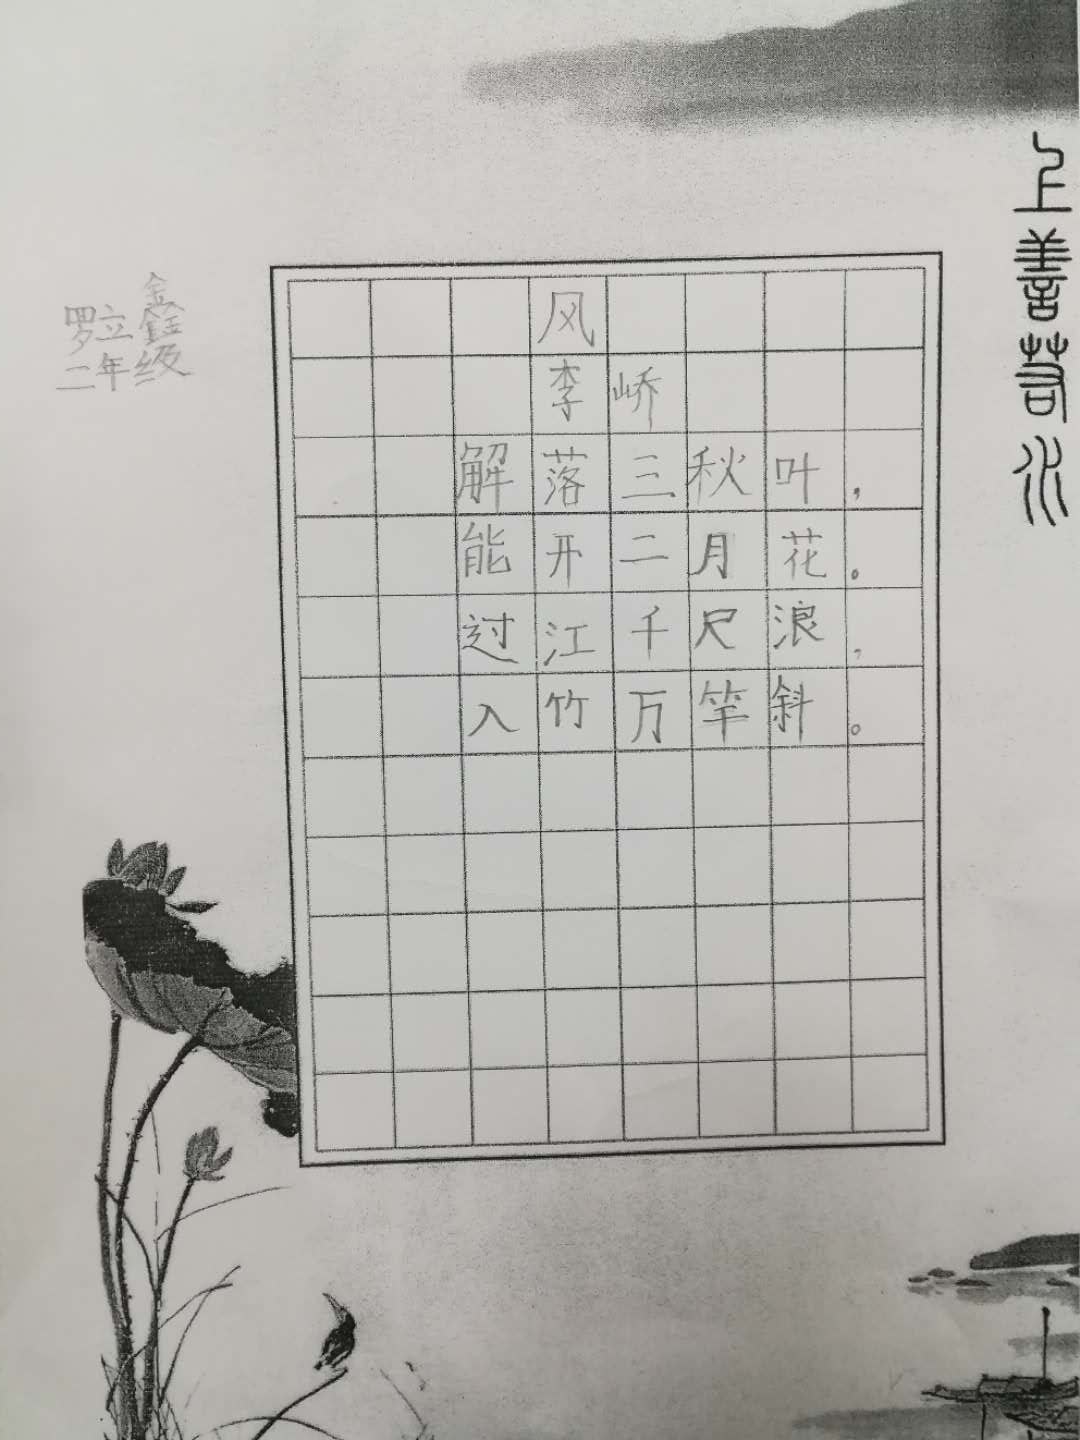 上善若水
罗立鑫
二年级
风
李峤
解落三秋叶，
能开二月花。
过江千尺浪，
入竹万竿斜。